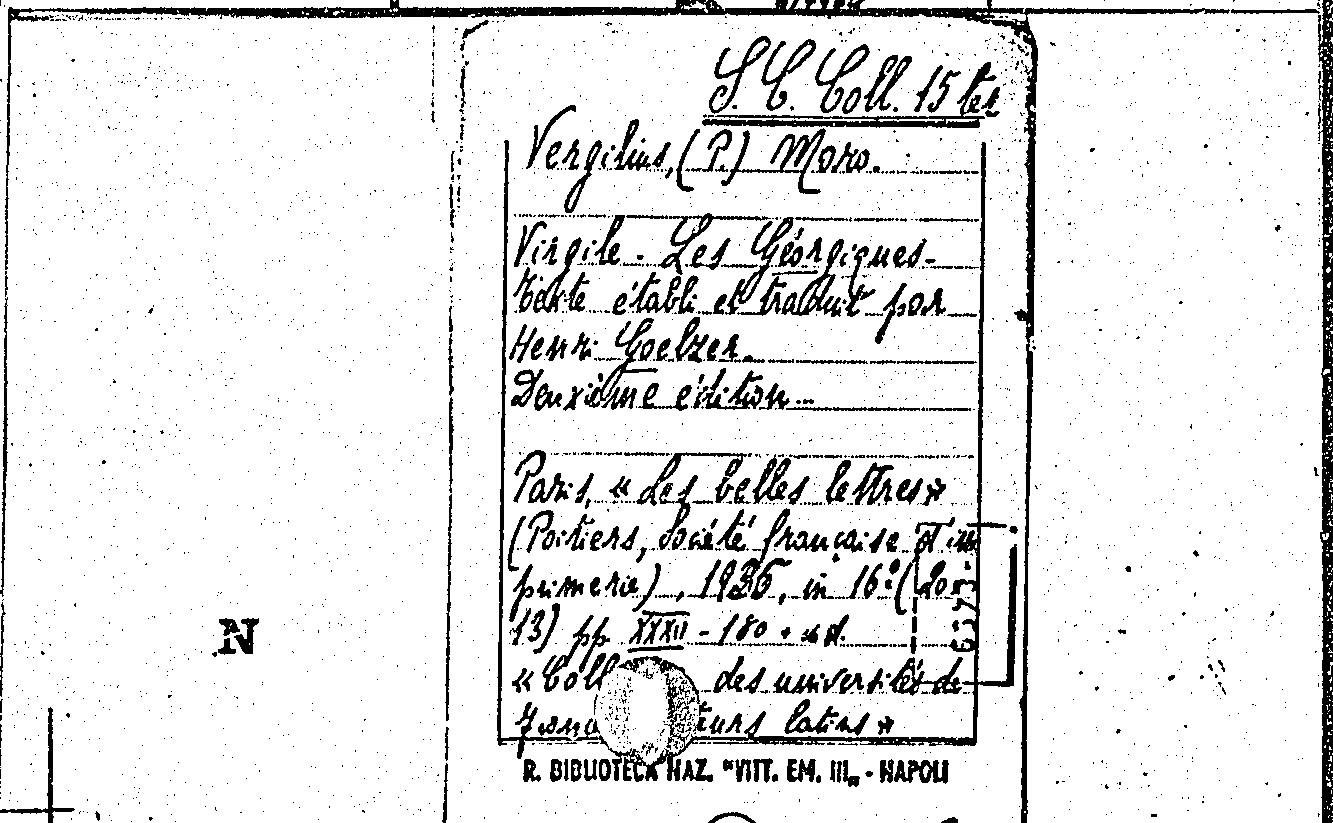 S. C. Coll. 15 ter
Vergilius, (P.) Maro.
Virgile - Les Géorgiques -
Texte établi et traduit par
Henri Goelzer.
Deuxième édition...
Paris, « Les belles lettres »
(Poitiers, Société française d'im
primerie), 1935, in 16º (20 ×
13) pp. XXXII - 180
« Coll des universités de
teurs latins »
R. BIBLIOTECA NAZ. "VITT. EM. III„ - NAPOLI
N